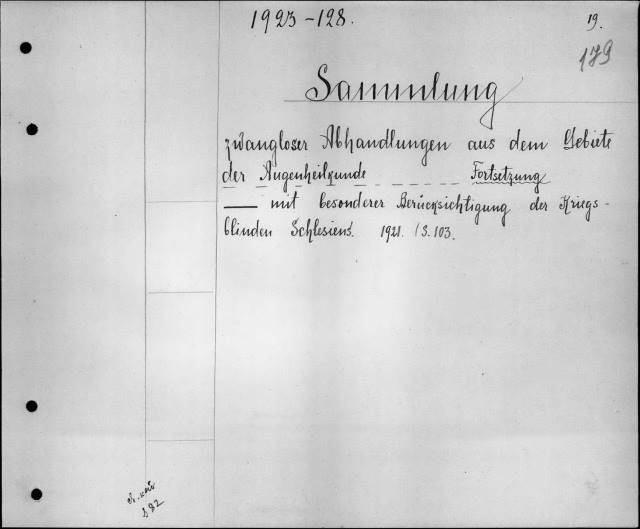 1923-128.
19.
179
Sammlung
zwangloser Abhandlungen aus dem Gebiete
der Augenheilkunde Fortsetzung
— mit besonderer Berücksichtigung der Kriegs-
blinden Schlesiens. 1921. /S. 103.